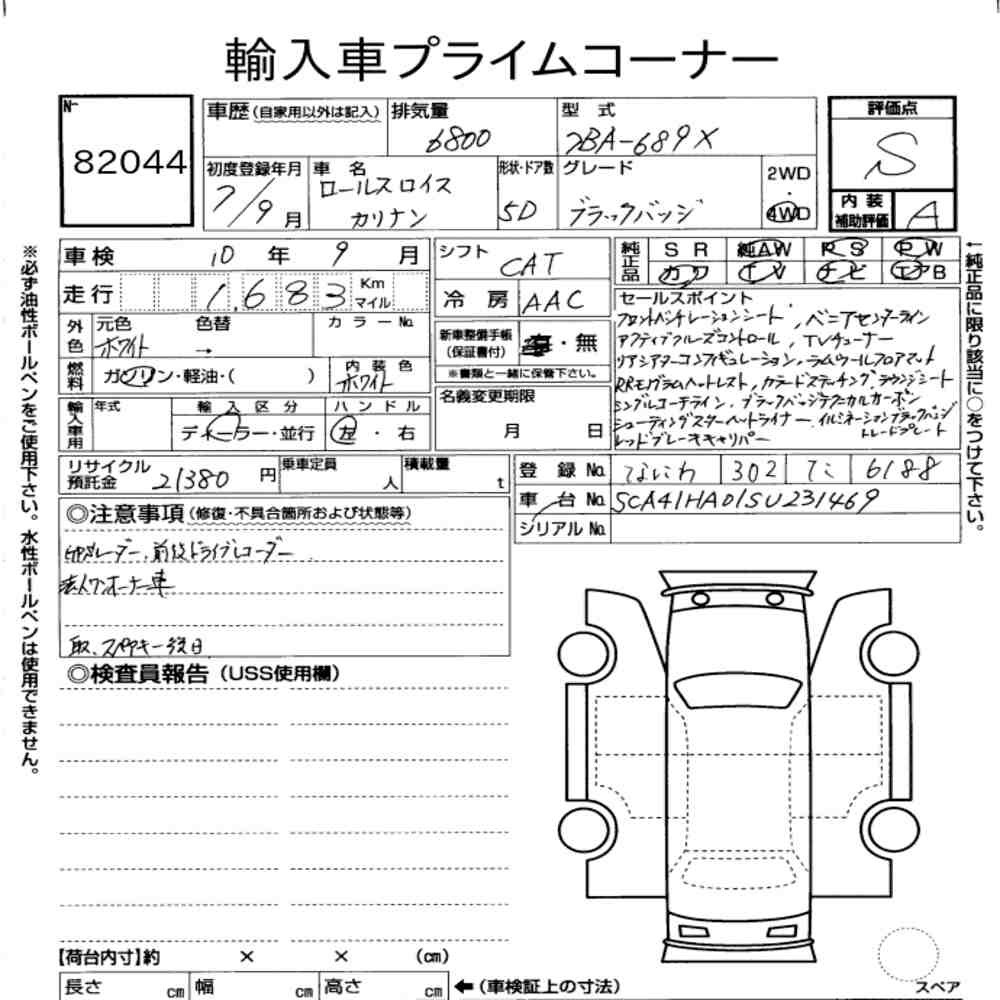 輸入車プライムコーナー
No. 82044
車歴(自家用以外は記入) 排気量 6800 型式 7BA-689X 評価点 S
初度登録年月 7/9月 車名 ロールスロイス カリナン 形状・ドア数 5D グレード ブラックバッジ 2WD・4WD 内装補助評価 A
車検 10年9月 シフト CAT 純正品 SR 純AW PS PW
カワ TV ナビ エアB
走行 1,683 Km マイル 冷房 AAC
外色 元色 ホワイト 色替 → カラーNo.
新車整備手帳(保証書付) 有・無
※書類と一緒に保管下さい。
燃料 ガソリン・軽油・( ) 内装色 ホワイト
名義変更期限 月 日
輸入車用 年式 輸入区分 ディーラー・並行 ハンドル 左・右
セールスポイント
フロントベンチレーションシート、ベニアセンターライン
アクティブクルーズコントロール、TVチューナー
リアシアターコンフィギュレーション、ラムウールフロアマット
RRモノグラムヘッドレスト、カラードステッチング、ラウンジシート
シングルコーチライン、ブラックバッジテクニカルカーボン
シューティングスターヘッドライナー、イルミネーションブラックバッジ
トレッドプレート
レッドブレーキキャリパー
リサイクル預託金 21380円 乗車定員 人 積載量 t
登録No. なにわ 302 て 6188
車台No. SCA41HA01SU231469
シリアルNo.
◎注意事項(修復・不具合箇所および状態等)
レーダー、前後ドライブレコーダー
法人ワンオーナー車
取、スペアキー後日
◎検査員報告(USS使用欄)
【荷台内寸】約 × × (cm)
長さ cm 幅 cm 高さ cm ←(車検証上の寸法)
スペア
※必ず油性ボールペンをご使用下さい。水性ボールペンは使用できません。
←純正品に限り該当に○をつけて下さい。